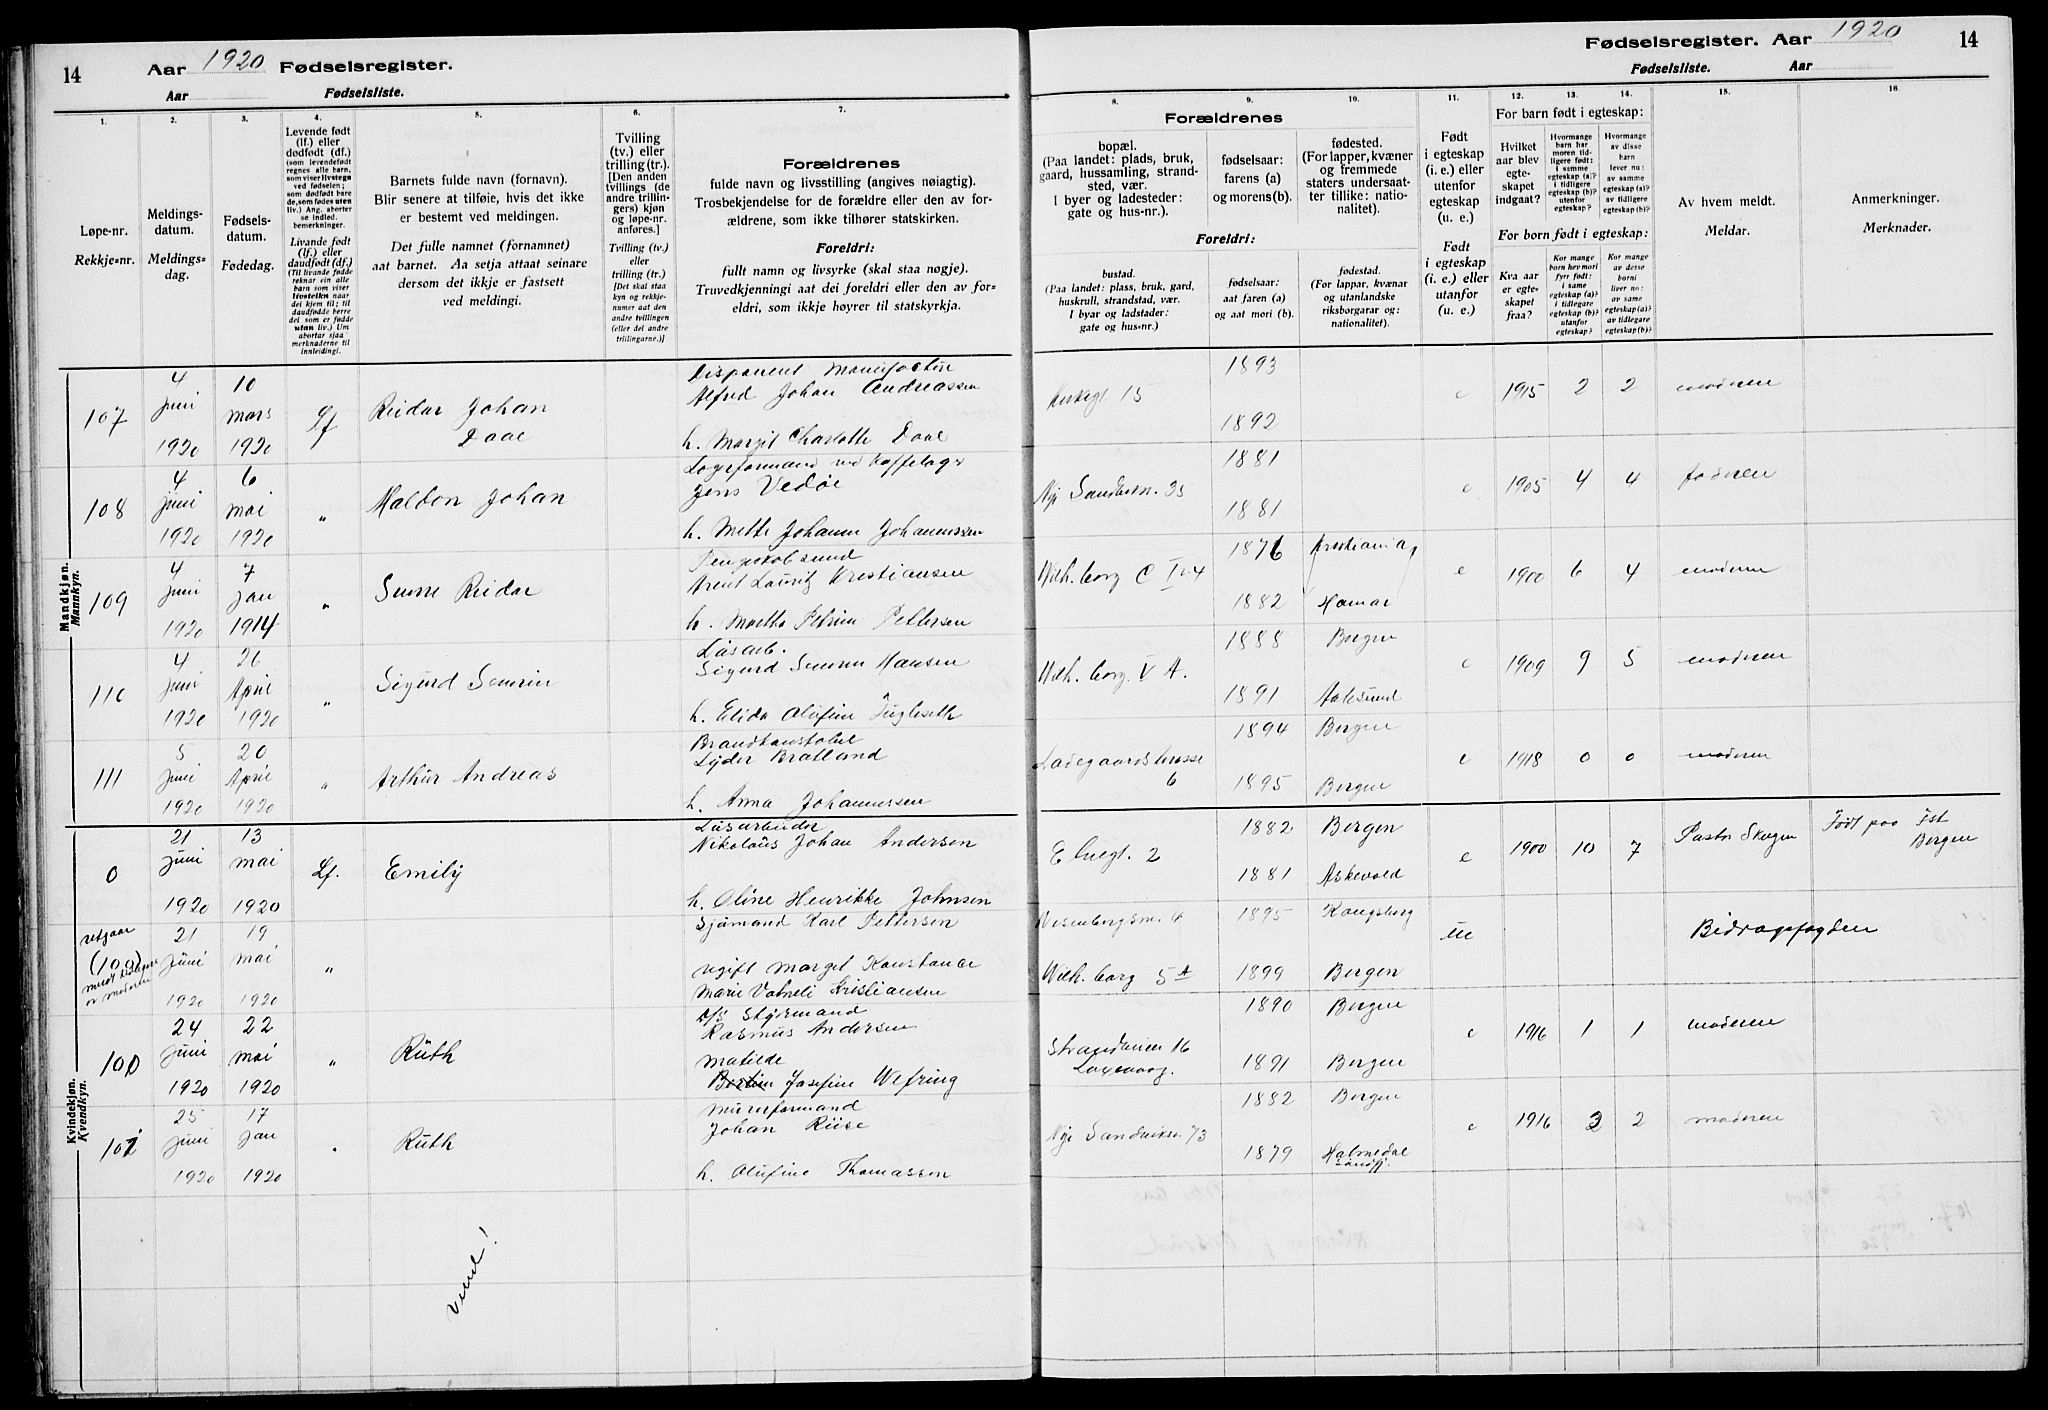 14
Aar 1920 Fødselsregister.
Aar Fødselsliste.
1.
2.
3.
4.
5.
6.
7.
Løpe-nr.
Rekkje-nr.
Meldings-
datum.
Meldings-
dag.
Fødsels-
datum.
Fødedag.
Levende født
(lf.) eller
dødfødt (df.)
(som levendefødt
regnes alle barn,
som viser livstegn
ved fødselen;
som dødfødt bare
de, som fødes uten
liv.) Ang. aborter
se indled.
bemerkninger.
Livande født
(lf.) eller
daudfødt (df.)
(Til livande fødde
reknar ein alle
barn som viser
livsteikn naar
dei kjem til; til
daudfødde berre
dei som er fødde
utan liv.) Um
abortar sjaa
merknaderne til
innleidingi.
Barnets fulde navn (fornavn).
Blir senere at tilføie, hvis det ikke
er bestemt ved meldingen.
Det fulle namnet (fornamnet)
aat barnet. Aa setja attaat seinare
dersom det ikkje er fastsett
ved meldingi.
Tvilling
(tv.) eller
trilling (tr.).
[Den anden
tvillings (de
andre trillin-
gers) kjøn
og løpe-nr.
anføres.]
Tvilling (tv.)
eller
trilling (tr.)
[Det skal staa
kyn og rekkje-
numer aat den
andre tvillingen
(eller dei andre
trilingarne.)]
Forældrenes
fulde navn og livsstilling (angives nøiagtig).
Trosbekjendelse for de forældre eller den av for-
ældrene, som ikke tilhører statskirken.
Foreldri:
fullt namn og livsyrke (skal staa nøgje).
Truvedkjenningi aat dei foreldri eller den av for-
eldri, som ikkje høyrer til statskyrkja.
Mandkjøn.
Mannkyn.
107
4 juni 1920
10 mars 1920
Lf
Reidar Johan
Daae
Disponent
Alfred Johan Andreassen
h. Margit Charlotte Daae
108
4 juni 1920
6 mai 1920
"
Haldon Johan
Lagerformand ved Kaffelager
Jens Vedøe
h. Mette Johanne Johannessen
109
4 juni 1920
7 jan 1914
"
Reidar
Lauritz Kristiansen
h. Martha Petrine Pettersen
110
4 juni 1920
26 April 1920
"
Sigurd Severin
Løsarb.
Sigurd Severin Hansen
h. Elida Olufine
111
5 juni 1920
20 April 1920
"
Arthur Andreas
Brandkonstabel
Lyder Bratland
h. Anna Johannessen
Kvindekjøn.
Kvendkyn.
0
21 juni 1920
13 mai 1920
Lf.
Emily
Løsarbeider
Nikolaus Johan Andersen
h. Oline Henrikke Johnsen
utgaar
(100)
meldt tidligere
av moderen
21 juni 1920
19 mai 1920
"
Sjømand Karl Pettersen
ugift Margit Konstance
Marie Kristiansen
100
24 juni 1920
22 mai 1920
"
Ruth
D/S Styrmand
Rasmus Andersen
Matilde
Josefine Wefring
101
25 juni 1920
17 jan 1920
"
Ruth
Murerformand
Johan Riise
h. Olufine Thomassen
Vend!
Fødselsregister. Aar 1920
14
Fødselsliste. Aar
8.
9.
10.
11.
12.
13.
14.
15.
16.
Forældrenes
bopæl.
(Paa landet: plads, bruk,
gaard, hussamling, strand-
sted, vær.
I byer og ladesteder:
gate og hus-nr.).
fødselsaar:
farens (a)
og morens (b).
fødested.
(For lapper, kvæner
og fremmede
staters undersaat-
ter tillike: natio-
nalitet).
Foreldri:
bustad.
(Paa landet: plass, bruk, gard,
huskrull, strandstad, vær.
I byar og ladstader:
gate og hus-nr.)
fødselsaar:
aat faren (a)
og aat mori (b).
fødestad.
(For lappar, kvænar
og utanlandske
riksborgarar og:
nationalitet).
Født
i egteskap
(i. e.) eller
utenfor
egteskap
(u. e.)
Født
i egteskap
(i. e.) eller
utanfor
(u. e.)
For barn født i egteskap:
Hvilket
aar blev
egte-
skapet
indgaat?
Hvormange
barn har
moren tid-
ligere født:
i samme
egteskap (a)?
i tidligere
egteskap (b)?
utenfor
egteskap?
Hvormange
av disse
barn
lever nu:
av samme
egteskap (a)?
av tidligere
egteskap (b)?
For born født i egteskap:
Kva aar
er egte-
skapet
fraa?
Kor mange
born hev mori
fyrr født:
i same
egteskap (a)?
i tidlegare
egteskap (b)?
utanfor
egteskap?
Kor mange
av desse
borni
liver no:
av same
egteskap (a)?
av tidlegare
egteskap (b)?
Av hvem meldt.
Meldar.
Anmerkninger.
Merknader.
15
1893
1892
e
1915
2
2
moderen
1881
1881
e
1905
4
4
faderen
1876
1882
Kristiania
Hamar
e
1900
6
4
moderen
Wilh. borg. V A.
1888
1891
Bergen
Aalesund
e
1909
9
5
moderen
Ladegaardsterrasse
6
1894
1895
Bergen
Bergen
e
1918
0
0
moderen
2
1882
1881
Bergen
Askevold
e
1900
10
7
Født paa
Bergen
Wilh. borg 5 A
1895
1899
Kongsberg
Bergen
ue
Bidragsfogden
16
Laxevaag.
1890
1891
Bergen
Bergen
e
1916
1
1
moderen
Nye Sandviksv. 73
1882
1879
Bergen
e
1916
3
2
moderen